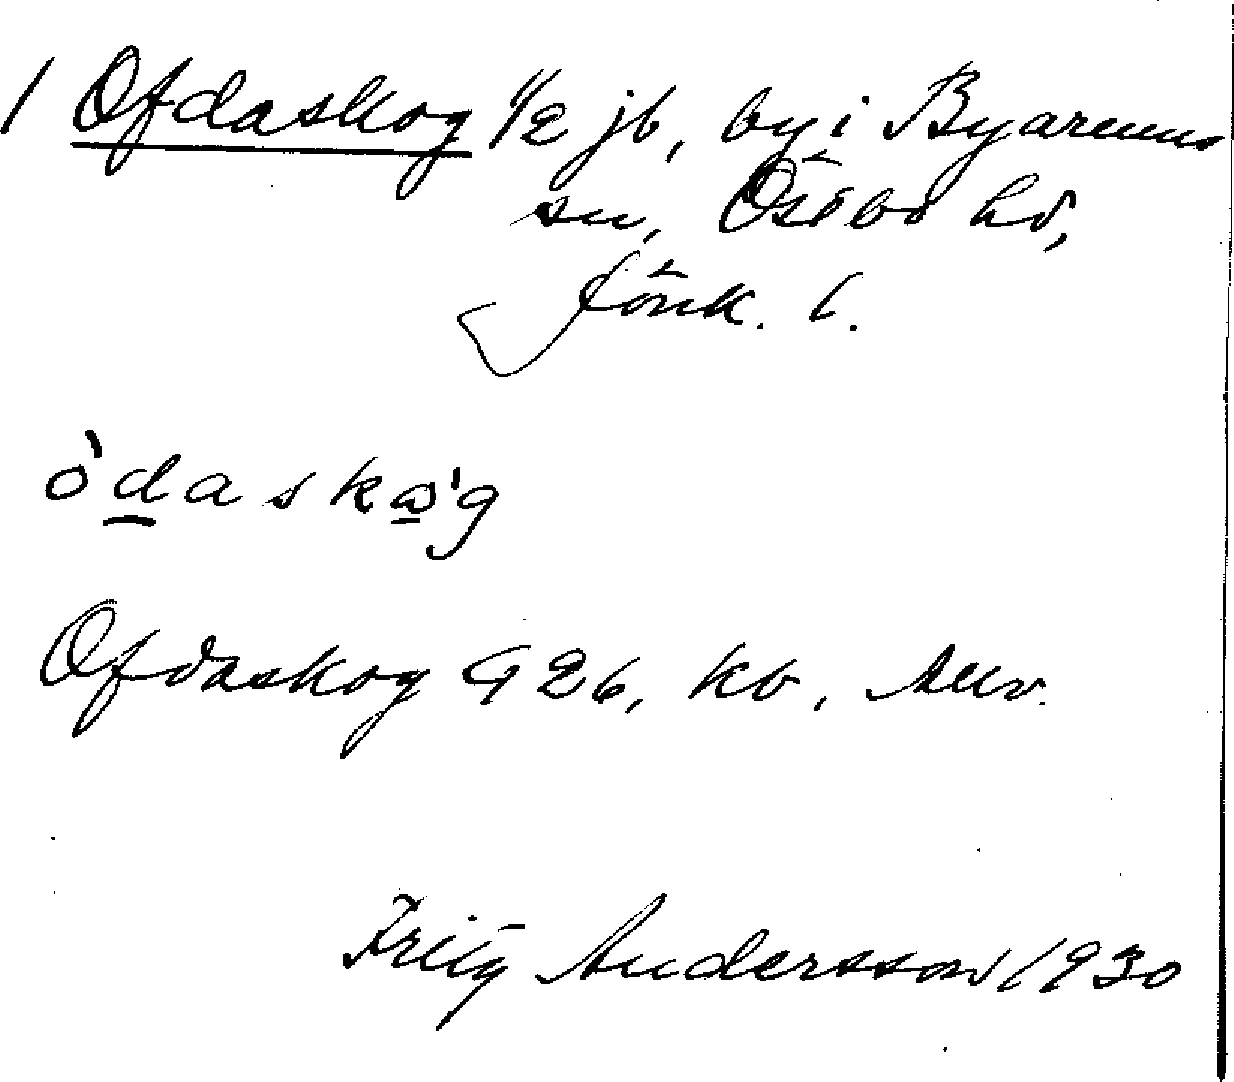 1 Ofdaskog 1/2 jb, by i Byarums
sn, Östbo hd,
Jönk. l.
òdaskω'g
Ofdaskog G 26, kb,
Fritz Andersson 1930